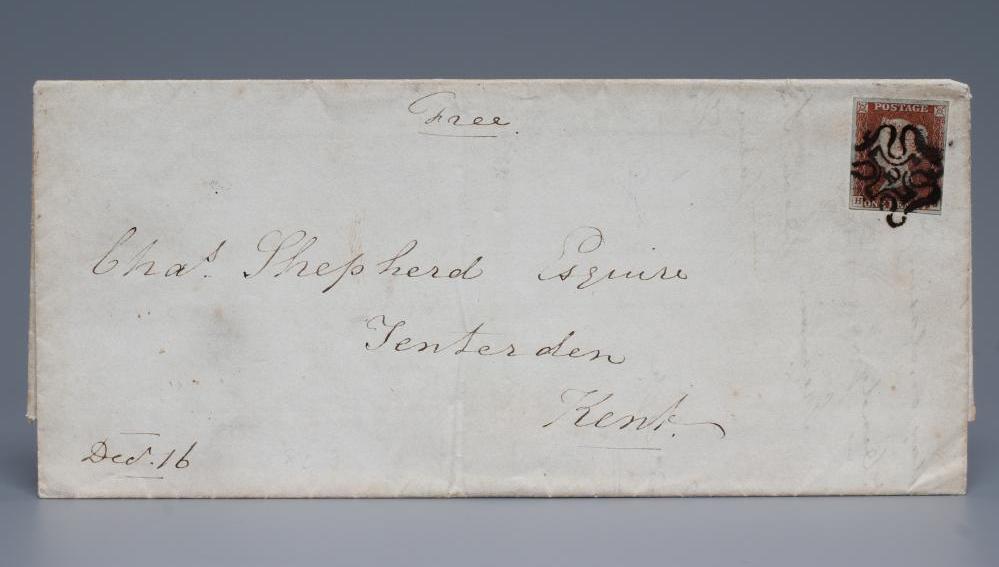 Free
POSTAGE
Chas. Shepherd Esquire
Tenterden
Kent.
16